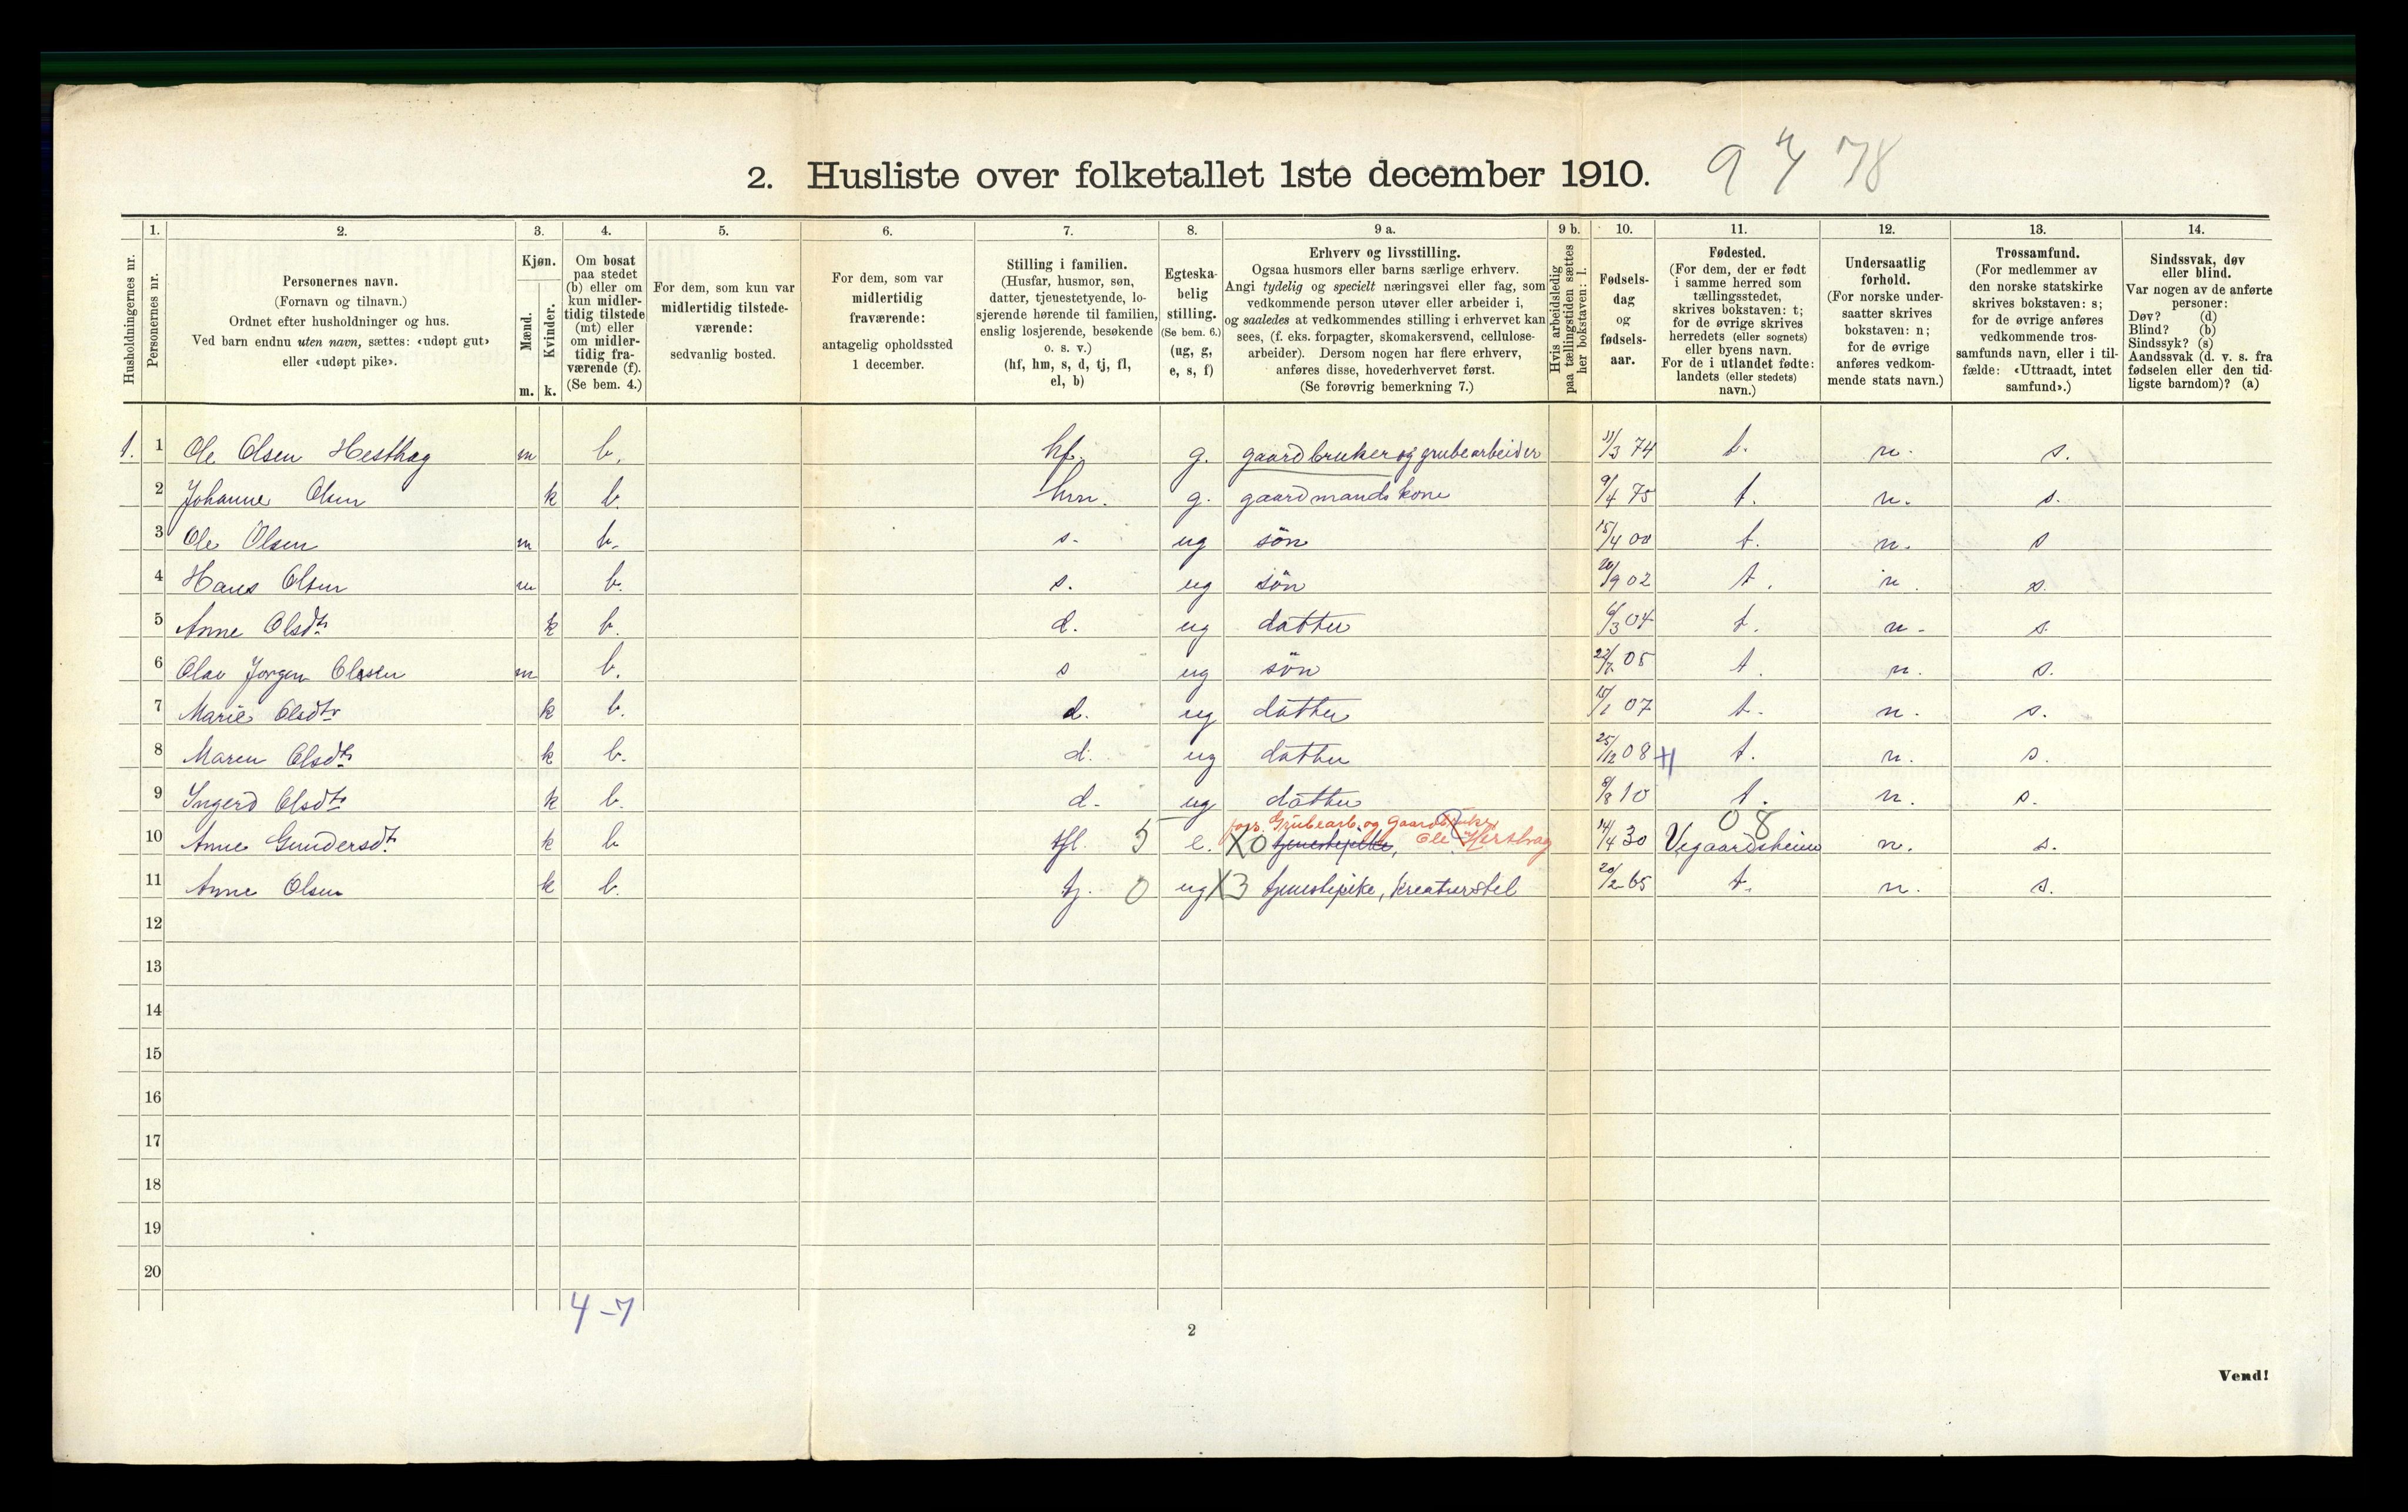 2. Husliste over folketallet 1ste december 1910.
9 4 78
Husholdningernes nr.
1. Personernes nr.
2. Personernes navn.
(Fornavn og tilnavn.)
Ordnet efter husholdninger og hus.
Ved barn endnu uten navn, sættes: «udøpt gut»
eller «udøpt pike».
3. Kjøn.
Mænd. m.
Kvinder. k.
4. Om bosat
paa stedet
(b) eller om
kun midler-
tidig tilstede
(mt) eller
om midler-
tidig fra-
værende (f).
(Se bem. 4.)
5. For dem, som kun var
midlertidig tilstede-
værende:
sedvanlig bosted.
6. For dem, som var
midlertidig
fraværende:
antagelig opholdssted
1 december.
7. Stilling i familien.
(Husfar, husmor, søn,
datter, tjenestetyende, lo-
sjerende hørende til familien,
enslig losjerende, besøkende
o. s. v.)
(hf, hm, s, d, tj, fl,
el, b)
8. Egteska-
belig
stilling.
(Se bem. 6.)
(ug, g,
e, s, f)
9 a. Erhverv og livsstilling.
Ogsaa husmors eller barns særlige erhverv.
Angi tydelig og specielt næringsvei eller fag, som
vedkommende person utøver eller arbeider i,
og saaledes at vedkommendes stilling i erhvervet kan
sees, (f. eks. forpagter, skomakersvend, cellulose-
arbeider). Dersom nogen har flere erhverv,
anføres disse, hovederhvervet først.
(Se forøvrig bemerkning 7.)
9 b. Hvis arbeidsledig
paa tællingstiden sættes
her bokstaven: l.
10. Fødsels-
dag
og
fødsels-
aar.
11. Fødested.
(For dem, der er født
i samme herred som
tællingsstedet,
skrives bokstaven: t;
for de øvrige skrives
herredets (eller sognets)
eller byens navn.
For de i utlandet fødte:
landets (eller stedets)
navn.)
12. Undersaatlig
forhold.
(For norske under-
saatter skrives
bokstaven: n;
for de øvrige
anføres vedkom-
mende stats navn.)
13. Trossamfund.
(For medlemmer av
den norske statskirke
skrives bokstaven: s;
for de øvrige anføres
vedkommende tros-
samfunds navn, eller i til-
fælde: «Uttraadt, intet
samfund».)
14. Sindssvak, døv
eller blind.
Var nogen av de anførte
personer:
Døv? (d)
Blind? (b)
Sindssyk? (s)
Aandssvak (d. v. s. fra
fødselen eller den tid-
ligste barndom)? (a)
1. 1 Ole Olsen Hesthag m b. hf. g. gaardbruker og grubearbeider 11/3 74 t. n. s.
2 Johanne Olsen k b. hm. g. gaardmands kone 9/4 75 t. n. s.
3 Ole Olsen m b. s. ug søn 15/4 00 t. n. s
4 Hans Olsen m b. s. ug søn 20/9 02 t. n. s.
5 Anne Olsdtr k b. d. ug datter 6/3 04 t. n. s.
6 Olav Jorgen Olssen m b. s ug søn 22/7 05 t. n. s.
7 Marie Olsdtr k b. d. ug datter 15/1 07 t. n. s.
8 Maren Olsdtr k b. d. ug datter 25/12 08 t. n. s.
9 Ingerd Olsdtr k b. d. ug datter 8/8 10 t. n. s.
fors. Grubearb. og Gaardbruker 08
10 Anne Gundersdtr k b fl. 5 e. X0 tjenestepike, Ole Hesthag 14/4 30 Vegaardsheien n. s.
11 Anne Olsen k b. tj. 0 ug X3 tjenestepike, kreaturstel 20/2 65 t. n. s.
12
13
14
15
16
17
18
19
20
4-7
2
Vend!